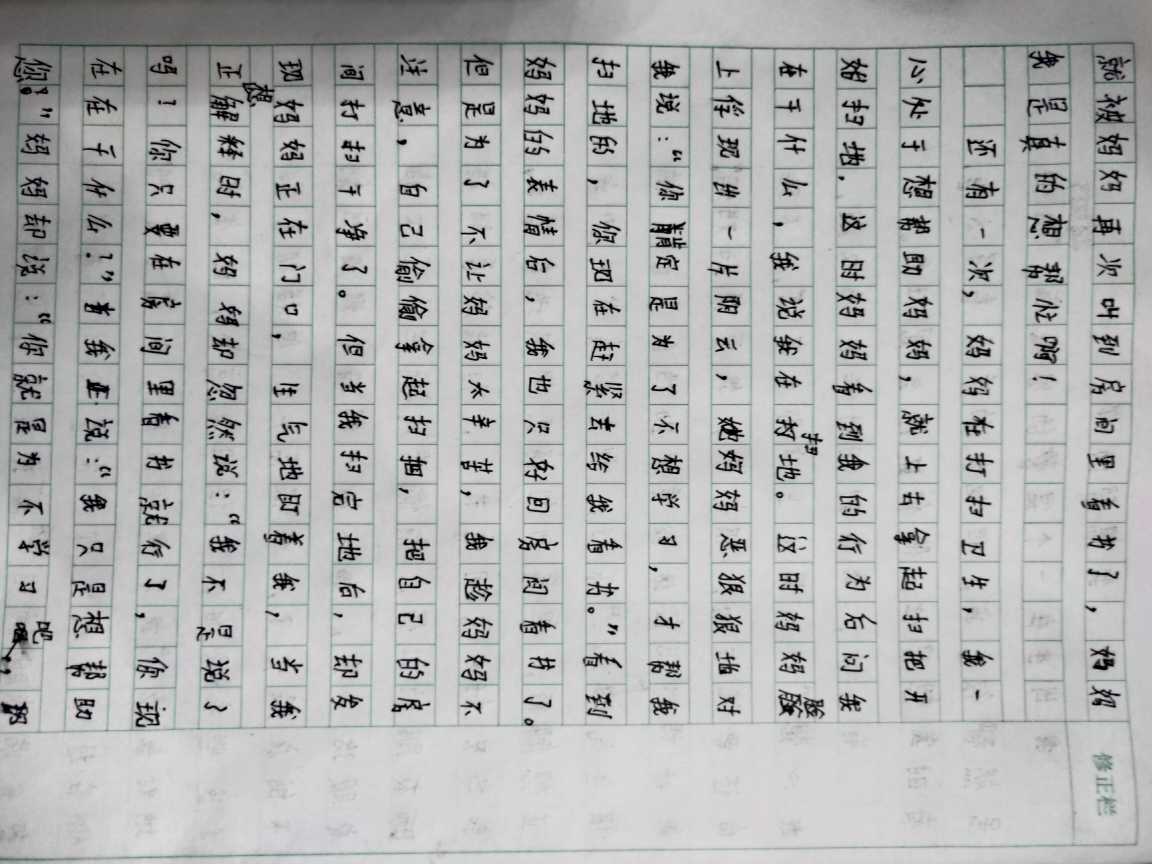 就被妈妈再次叫到房间里看书了，妈妈
我是真的想帮忙啊！
还有一次，妈妈在打扫卫生，我一
心处于想帮助妈妈，就上去拿起扫把开
始扫地，这时妈妈看到我的行为后问我
在干什么，我说我在扫地。这时妈妈脸
上浮现出一片阴云，妈妈恶狠狠地对
我说：“你肯定是为了不想学习，才帮我
扫地的，你现在赶紧去给我看书。”看到
妈妈的表情后，我也只好回房间看书了。
但是为了不让妈妈太辛苦，我趁妈妈不
注意，自己偷偷拿起扫把，把自己的房
间打扫干净了。但当我扫完地后，却发
现妈妈正在门口，生气地盯着我，当我
正想解释时，妈妈却忽然说：“我不是说了
吗？你只要在房间里看书就行了，你现
在在干什么？”我说：“我只是想帮助
您。”妈妈却说：“你就是为不学习吧
修正栏